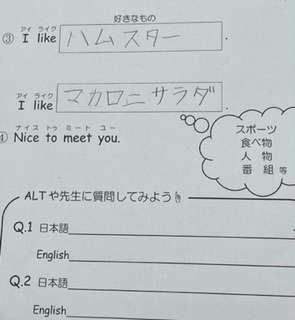 好きなもの
アイ ライク
③ I like ハムスター.
アイ ライク
I like マカロニサラダ.
ナイス トゥ ミート ユー
④ Nice to meet you.
スポーツ
食べ物
人物
番組 等
ALTや先生に質問してみよう
Q.1 日本語
English
Q.2 日本語
English